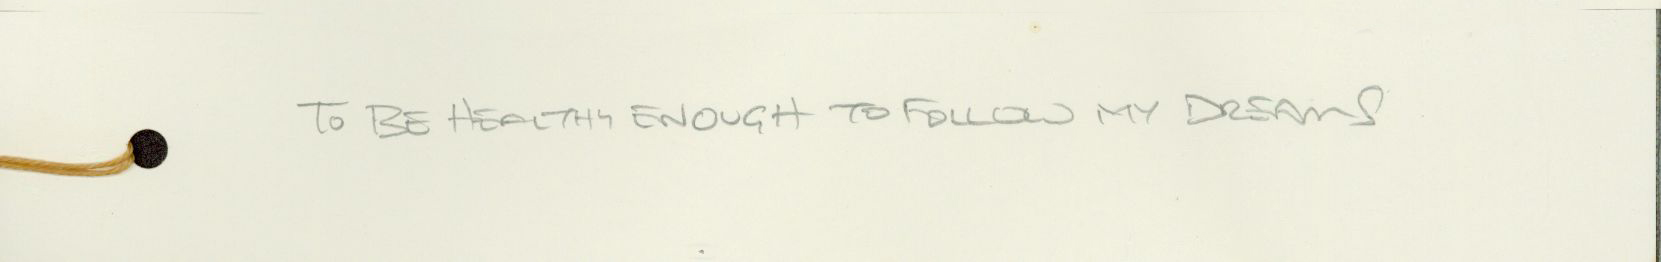 TO BE HEALTHY ENOUGH TO FOLLOW MY DREAMS